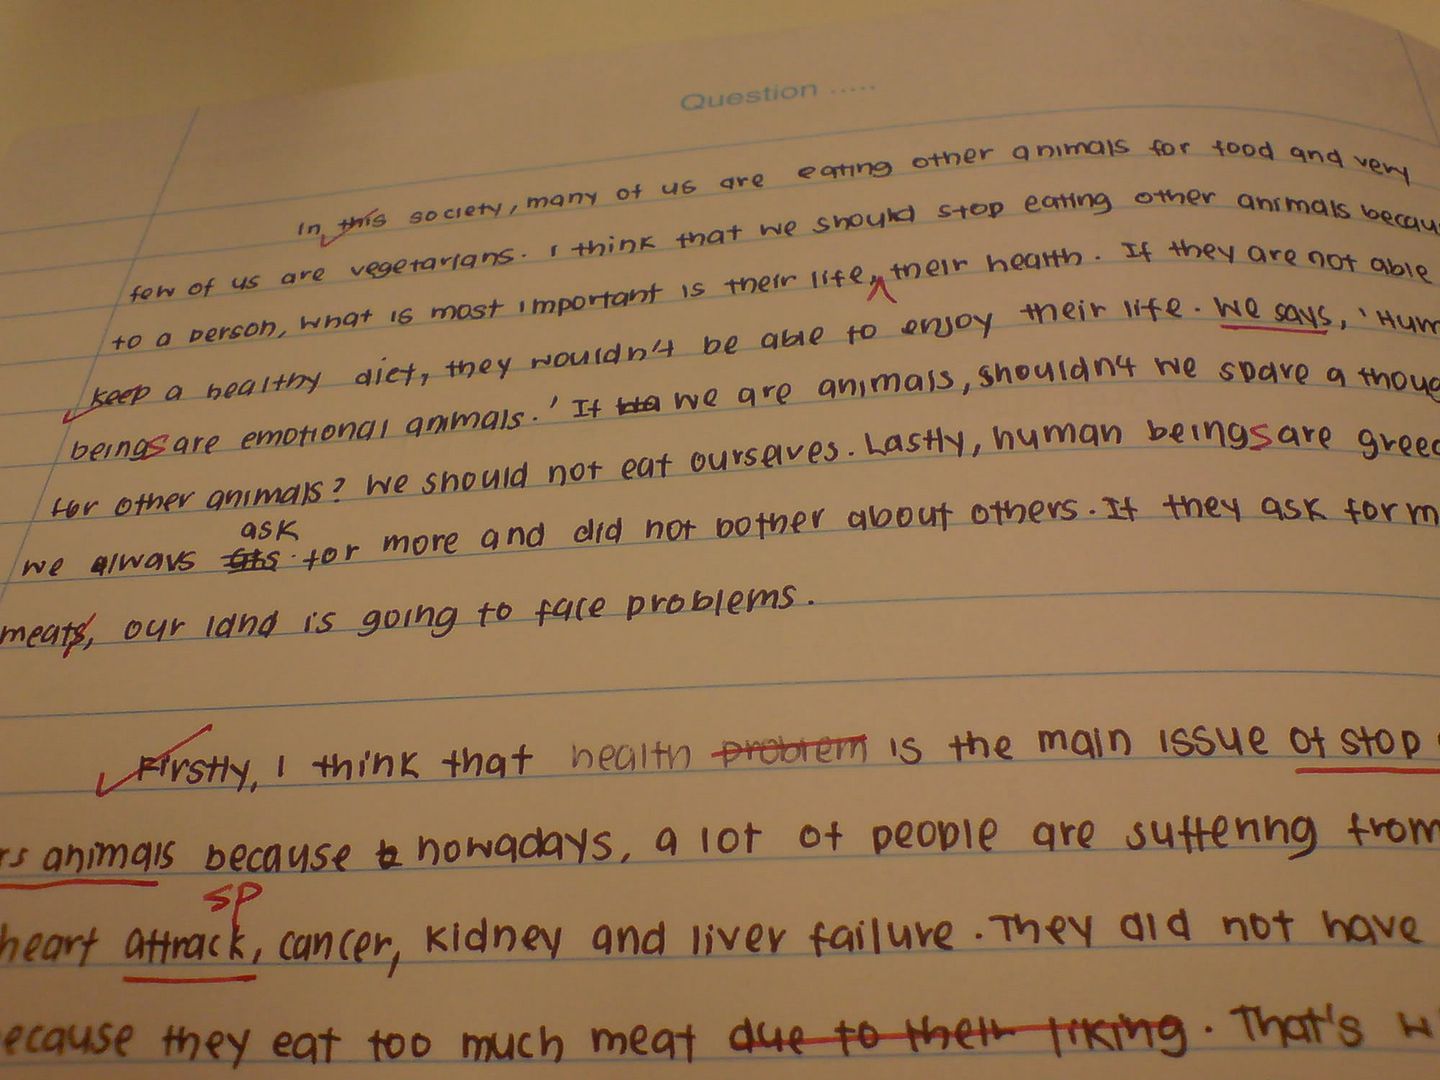 Question .....
In this society, many of us are eating other animals for food and very
few of us are vegetarians. I think that we should stop eating other animals becau
to a person, what is most important is their life, their health. If they are not able
keep a healthy diet, they wouldn't be able to enjoy their life. We says, 'Hum
beings are emotional animals.' If we are animals, shouldn't we spare a thoug
for other animals? We should not eat ourselves. Lastly, human beings are greed
ask
we always for more and did not bother about others. If they ask for m
meats, our land is going to face problems.
Firstly, I think that health problem is the main issue of stop
rs animals because nowadays, a lot of people are suffering from
sp
heart attrack, cancer, kidney and liver failure. They did not have
ecause they eat too much meat due to their liking. That's w